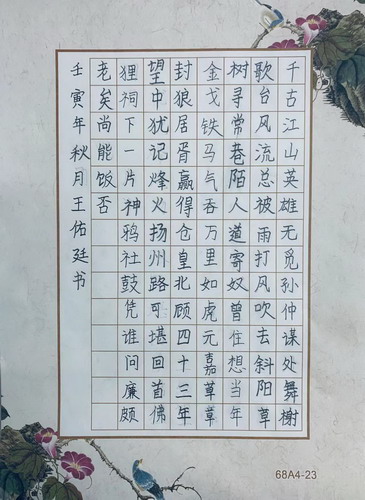 千古江山英雄无觅孙仲谋处舞榭
歌台风流总被雨打风吹去斜阳草
树寻常巷陌人道寄奴曾住想当年
金戈铁马气吞万里如虎元嘉草草
封狼居胥赢得仓皇北顾四十三年
望中犹记烽火扬州路可堪回首佛
狸祠下一片神鸦社鼓凭谁问廉颇
老矣尚能饭否
壬寅年秋月王佑廷书
68A4-23